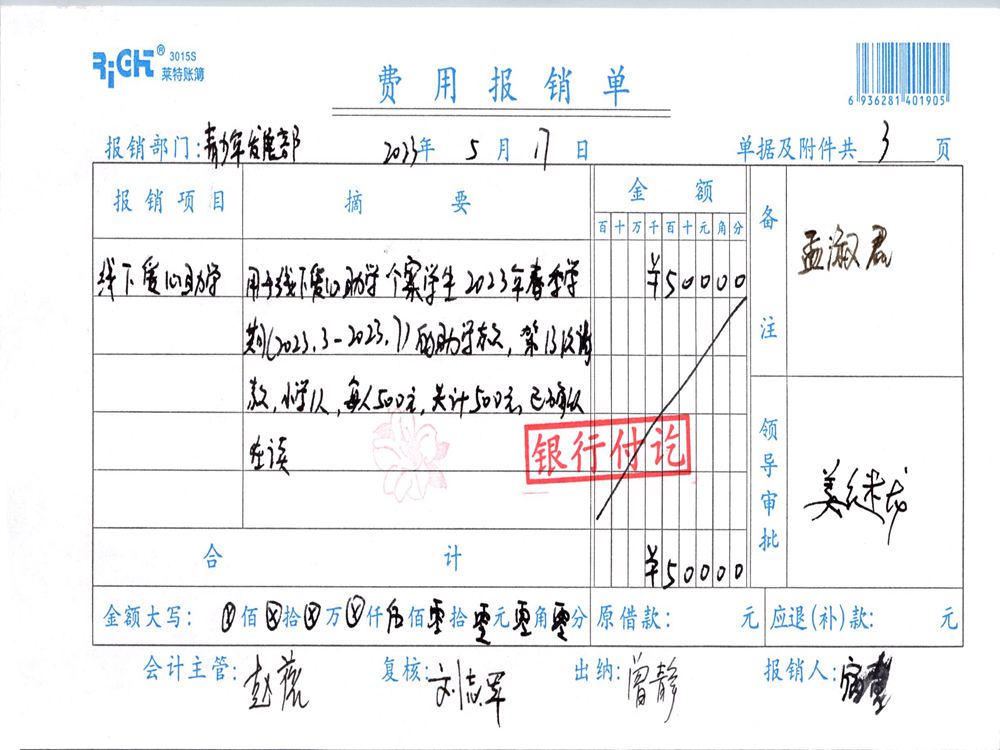 RiCH® 3015S
莱特账簿
费用报销单
6 936281 401905
报销部门:青少年发展部 2023年 5月 17日 单据及附件共 3 页
报销项目 摘要 金额 备注
百十万千百十元角分
孟淑君
线下爱心助学 用于线下爱心助学个案学生2023年春季学 ¥50000
期(2023.3-2023.7)的助学款,第13次
款,小学1人,每人500元,共计500元,已确认
在读
银行付讫
领导审批
合计 ¥50000
金额大写: ⊗佰⊗拾⊗万⊗仟伍佰零拾零元零角零分 原借款: 元 应退(补)款: 元
会计主管: 赵 复核: 刘志军 出纳: 曾静 报销人: